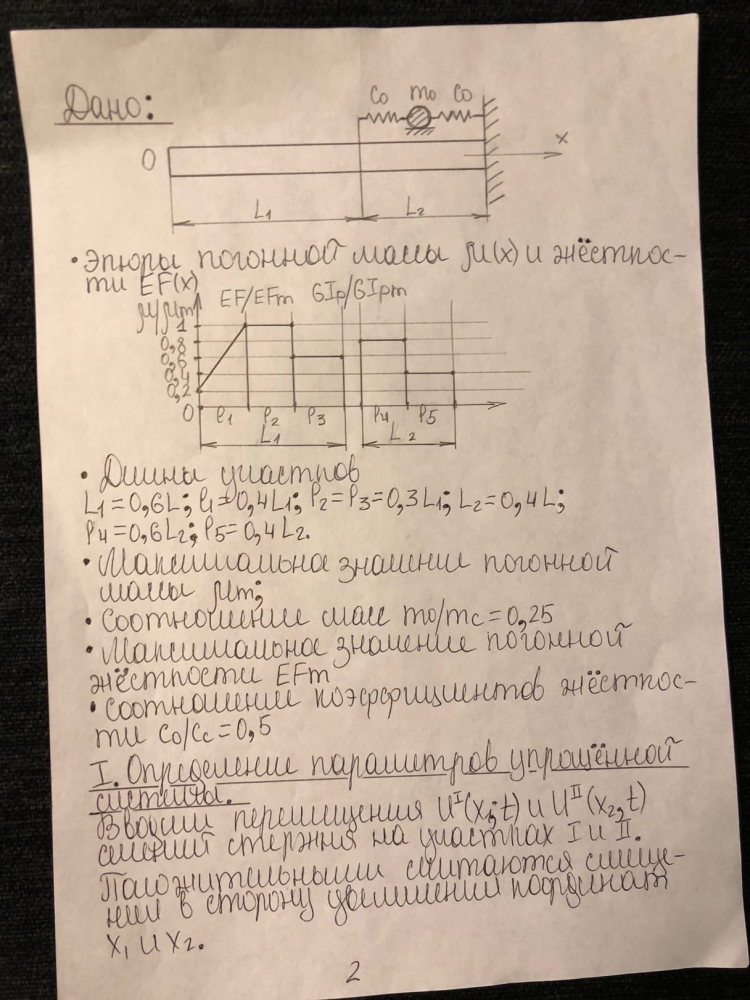 Дано:
C₀ m₀ C₀
0 x
L₁ L₂
• Эпюры погонной массы μ(x) и жёсткос-
ти EF(x)
μ/μm EF/EFm GIp/GIpm
1
0,8
0,6
0,4
0,2
0 ℓ₁ ℓ₂ ℓ₃ ℓ₄ ℓ₅
L₁ L₂
• Длины участков
L₁=0,6L; ℓ₁=0,4L₁; ℓ₂=ℓ₃=0,3L₁; L₂=0,4L;
ℓ₄=0,6L₂; ℓ₅=0,4L₂.
• Максимальное значение погонной
массы μm;
• Соотношение масс m₀/mc=0,25
• Максимальное значение погонной
жёсткости EFm
• Соотношение коэффициентов жёсткос-
ти C₀/Cc=0,5
I. Определение параметров упрощённой
системы.
Вводим перемещения U^I(x₁,t) и U^II(x₂,t)
сечений стержня на участках I и II.
Положительными считаются смеще-
ния в сторону увеличения координат
x₁ и x₂.
2